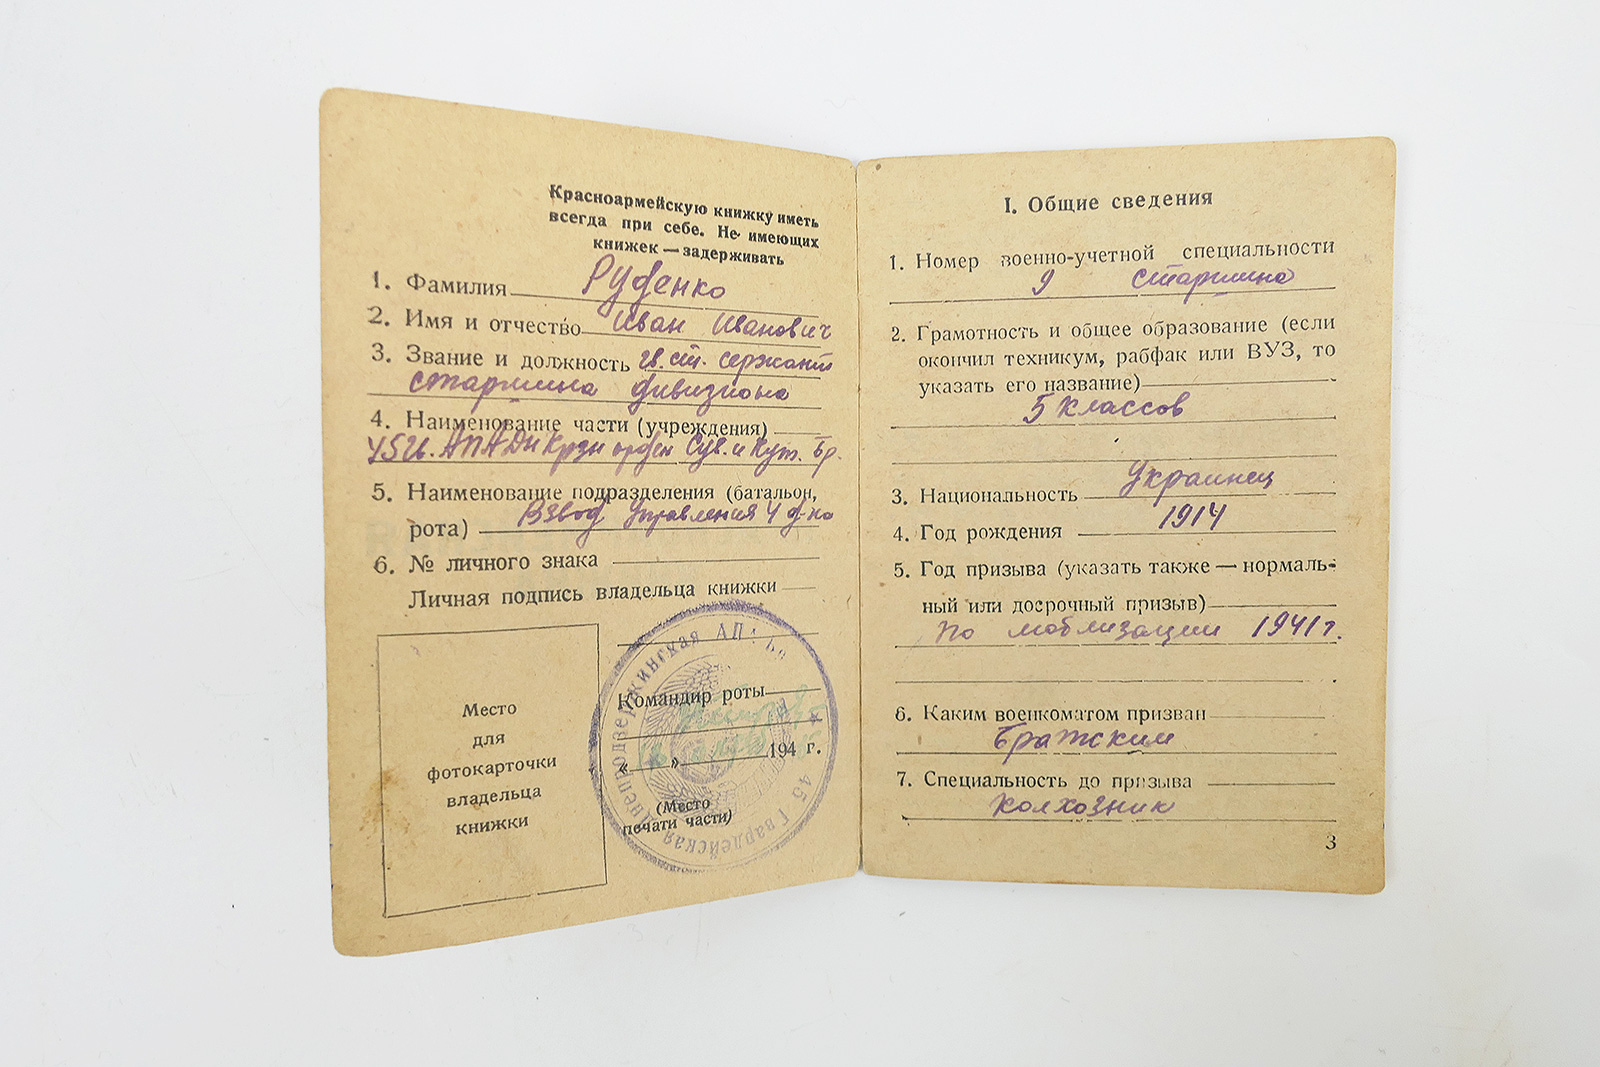 Красноармейскую книжку иметь
всегда при себе. Не имеющих
книжек — задерживать
1. Фамилия Руденко
2. Имя и отчество Иван Иванович
3. Звание и должность гв. ст. сержант
старшина дивизиона
4. Наименование части (учреждения)
45 орден Сув. и Кут. Бр.
5. Наименование подразделения (батальон,
рота) Взвод Управления 4 д-на
6. № личного знака
Личная подпись владельца книжки
Место
для
фотокарточки
владельца
книжки
Командир роты
« » 194 г.
(Место
печати части)
45 Гвардейская Днепродзержинская
I. Общие сведения
1. Номер военно-учетной специальности
9 старшина
2. Грамотность и общее образование (если
окончил техникум, рабфак или ВУЗ, то
указать его название)
5 классов
3. Национальность Украинец
4. Год рождения 1914
5. Год призыва (указать также — нормаль-
ный или досрочный призыв)
по мобилизации 1941 г.
6. Каким военкоматом призван
Братским
7. Специальность до призыва
колхозник
3